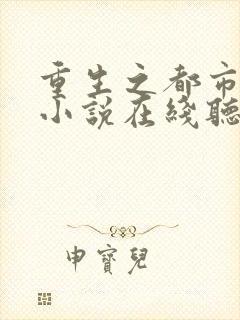 重生之都市
小說在綫聽
申寶兒